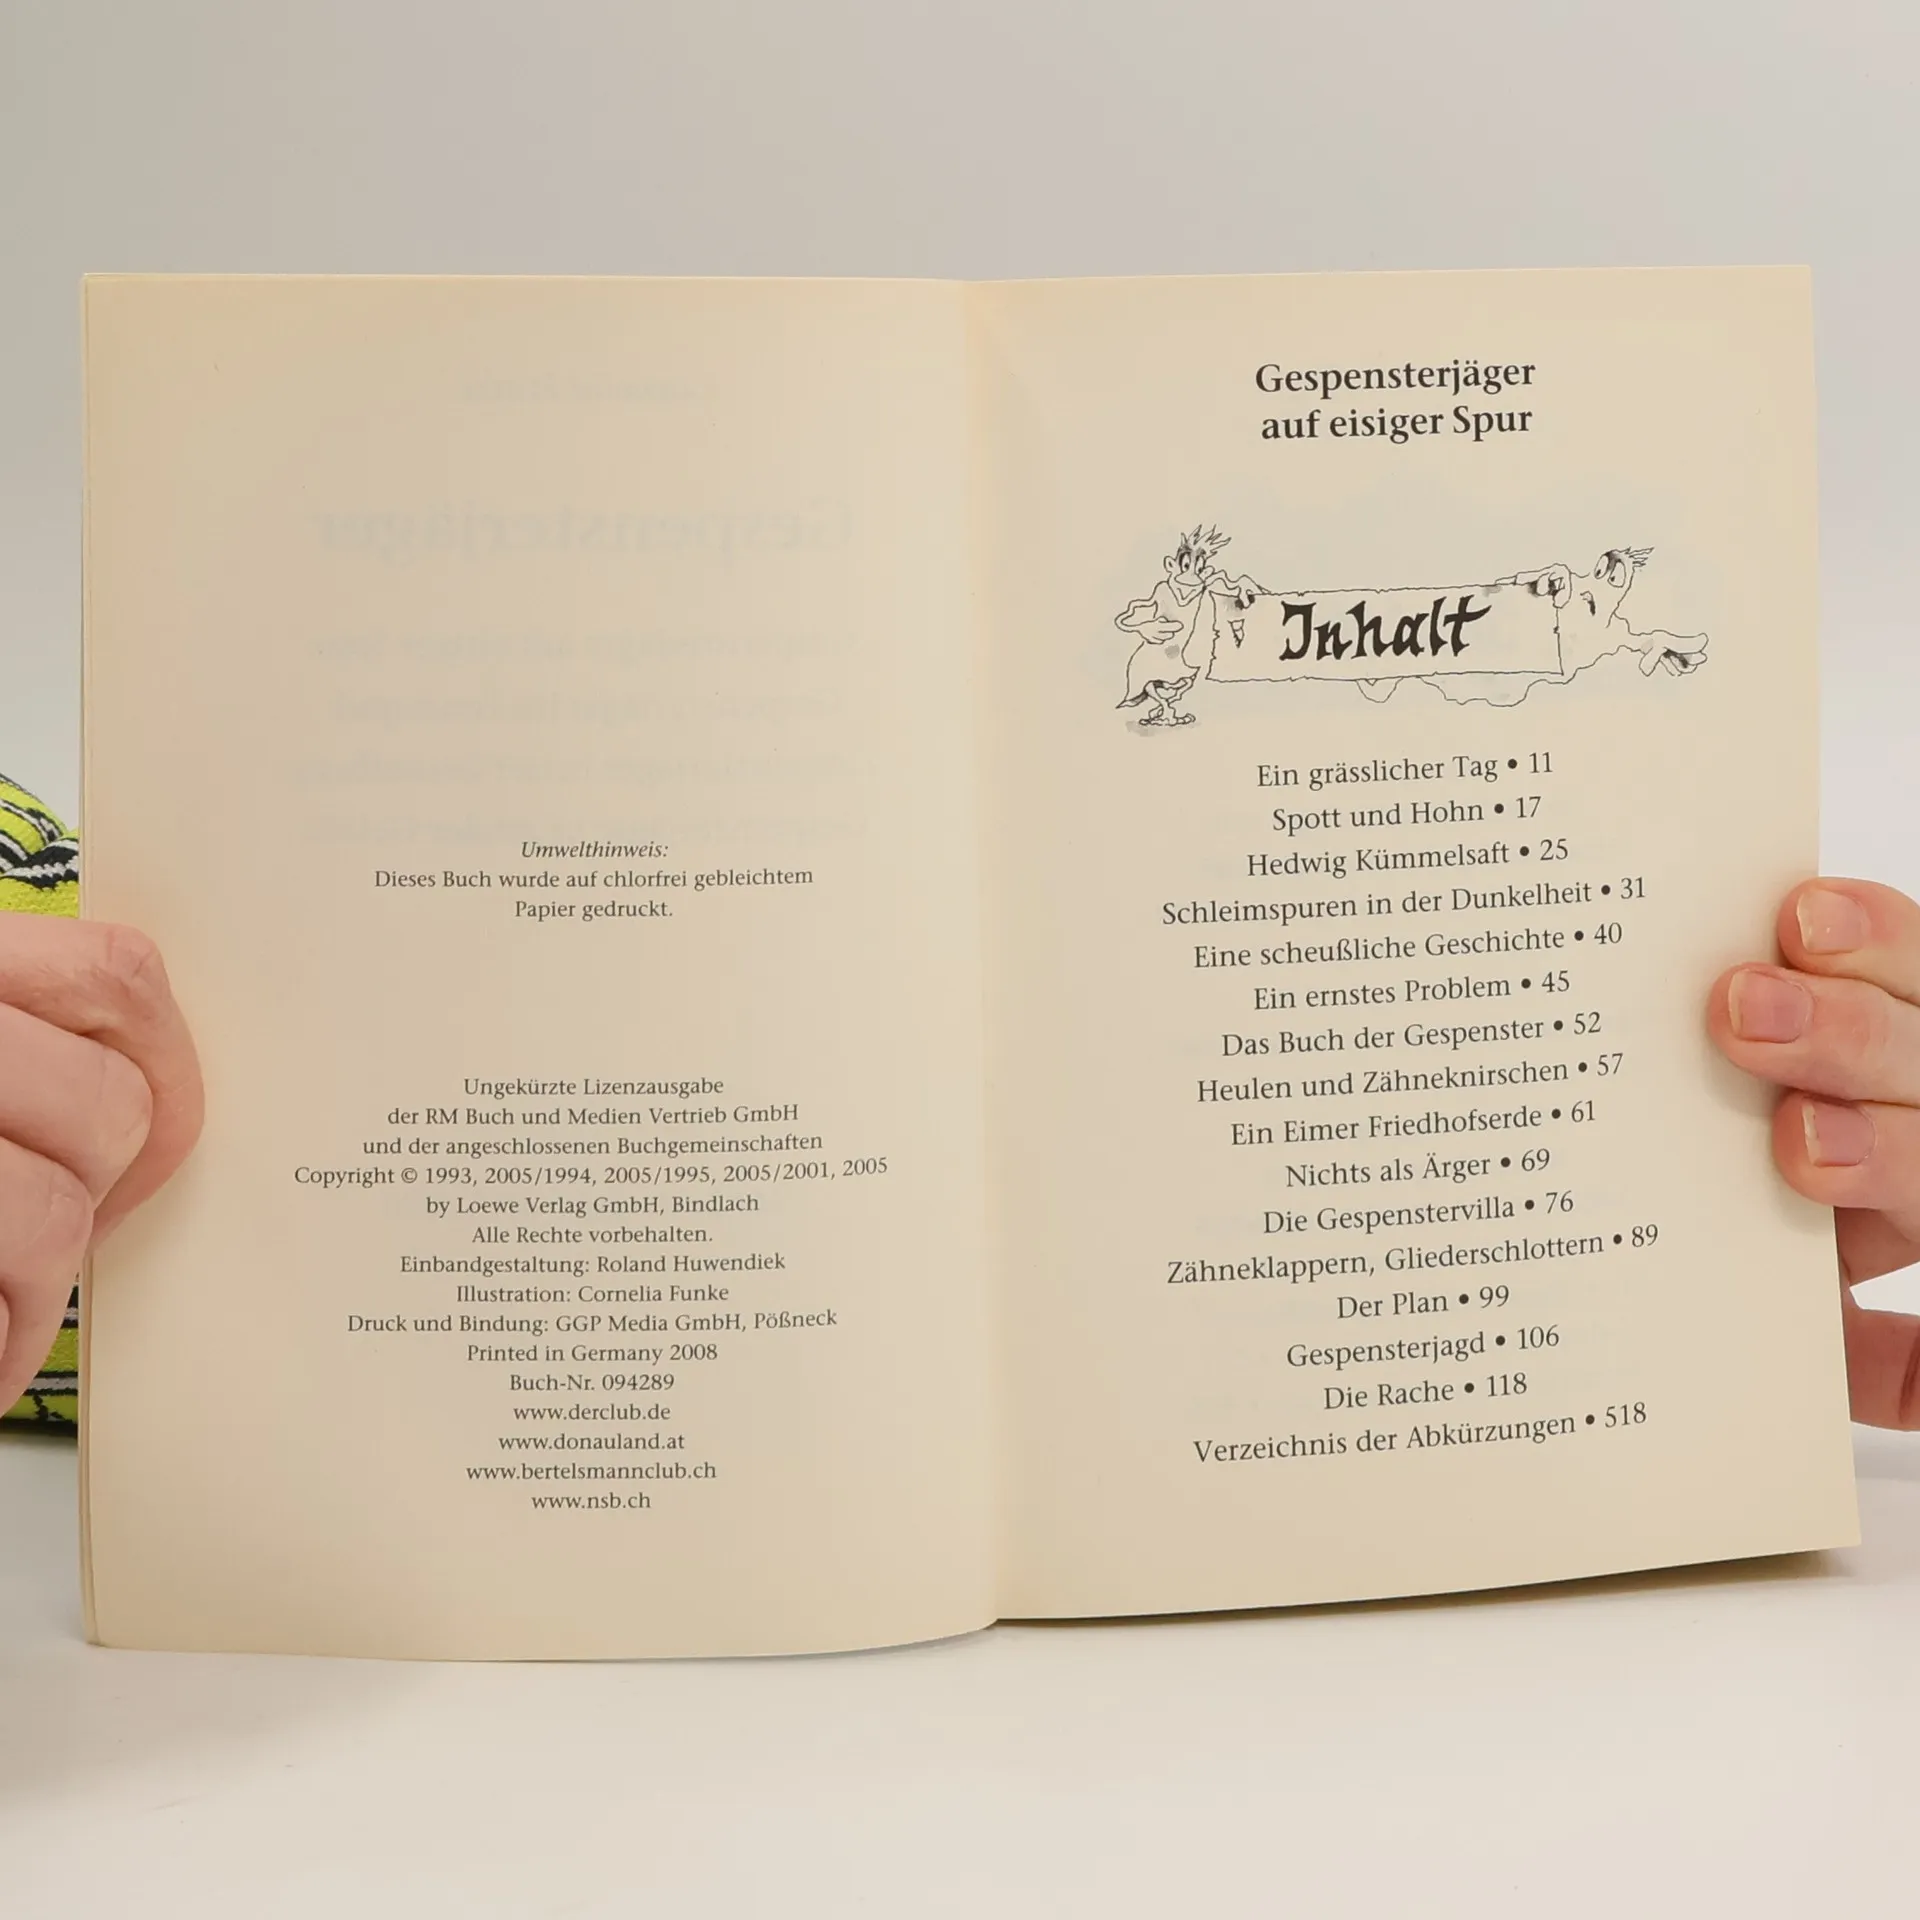 Umwelthinweis:
Dieses Buch wurde auf chlorfrei gebleichtem
Papier gedruckt.
Ungekürzte Lizenzausgabe
der RM Buch und Medien Vertrieb GmbH
und der angeschlossenen Buchgemeinschaften
Copyright © 1993, 2005/1994, 2005/1995, 2005/2001, 2005
by Loewe Verlag GmbH, Bindlach
Alle Rechte vorbehalten.
Einbandgestaltung: Roland Huwendiek
Illustration: Cornelia Funke
Druck und Bindung: GGP Media GmbH, Pößneck
Printed in Germany 2008
Buch-Nr. 094289
www.derclub.de
www.donauland.at
www.bertelsmannclub.ch
www.nsb.ch
Gespensterjäger
auf eisiger Spur
Inhalt
Ein grässlicher Tag • 11
Spott und Hohn • 17
Hedwig Kümmelsaft • 25
Schleimspuren in der Dunkelheit • 31
Eine scheußliche Geschichte • 40
Ein ernstes Problem • 45
Das Buch der Gespenster • 52
Heulen und Zähneknirschen • 57
Ein Eimer Friedhofserde • 61
Nichts als Ärger • 69
Die Gespenstervilla • 76
Zähneklappern, Gliederschlottern • 89
Der Plan • 99
Gespensterjagd • 106
Die Rache • 118
Verzeichnis der Abkürzungen • 518